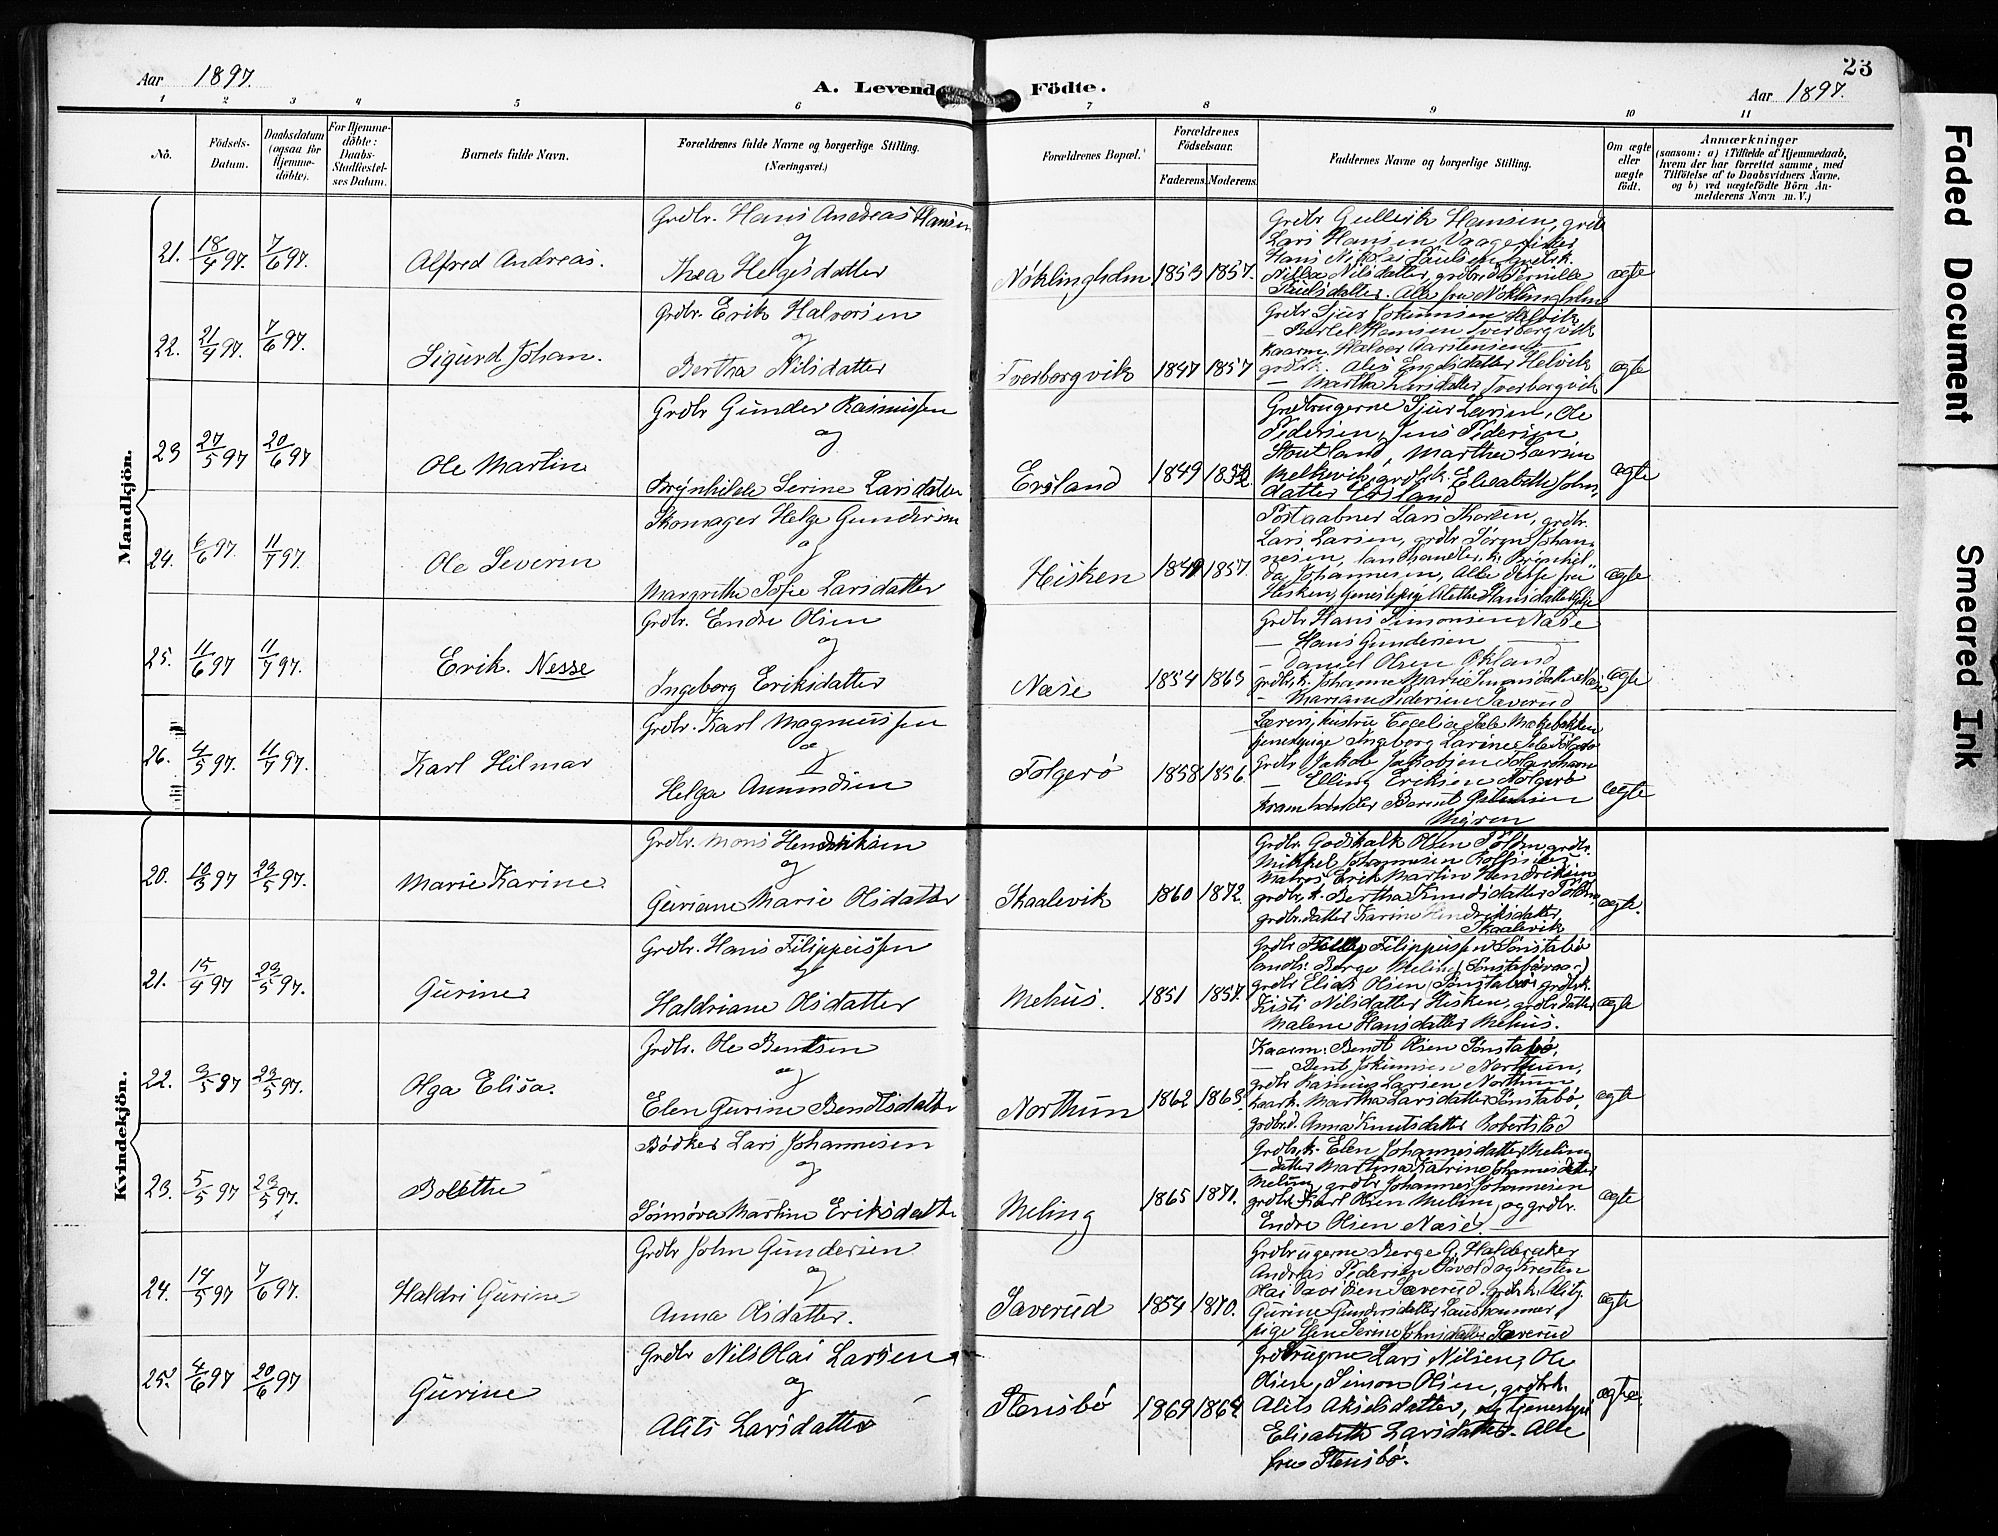 Aar 1897.
A. Levende Födte.
23
Aar 1897.
1 2 3 4 5 6 7 8 9 10 11
No.
Födsels-
Datum.
Daabsdatum
(ogsaa for
Hjemme-
döbte).
For Hjemme-
döbte:
Daabs-
Stadfæstel-
ses Datum.
Barnets fulde Navn.
Forældrenes fulde Navne og borgerlige Stilling.
(Næringsvei.)
Forældrenes Bopæl.
Forældrenes
Födselsaar.
Faderens. Moderens.
Faddernes Navne og borgerlige Stilling.
Om ægte
eller
uægte
födt.
Anmærkninger
(saasom: a) i Tilfælde af Hjemmedaab,
hvem der har forrettet samme, med
Tilföielse af to Daabsvidners Navne.
og b) ved uægtefödte Börn An-
melderens Navn m. V.)
Mandkjön.
21. 18/4 97. 7/6 97. Alfred Andreas.
Grdbr. Hans Andreas Hansen
og
Thea Helgesdatter
Nöklingholm 1853 1857.
Grdbr Gullerik Hansen, grdb
Lars Hansen Vaage
Hans Nikolai Paulsen
Nilla Nilsdatter, Pernille
Paulsdatter. Alle fra Nöklingholm
ægte
22. 21/4 97. 7/6 97. Sigurd Johan.
Grdbr. Erik Halvorsen
og
Bertha Nilsdatter
Tverborgvik 1847 1857
Grdbr Sjur Johannesen Helvik
— Bertel Hansen Tverborgvik
Kaarm. Halvor Aartensen —
grdbrk. Alis Engelsdatter Helvik
— Martha Larsdatter, Tverborgvik
ægte
23 27/5 97 20/6 97 Ole Martin
Grdbr Gunder Rasmussen
og
Brynhilde Serine Larsdatter
Ersland 1849 1852
Grdbrugerne Sjur Larsen, Ole
Pedersen, Jens Pedersen
Stoutland, Martha Larsen
Melkevik, grdbrk. Elisabeth Johns
datter Ersland
ægte
24. 6/6 97. 11/7 97. Ole Severin
Skomager Helge Gundersen
og
Margrethe Sofie Larsdatter
Hisken 1849 1857.
Postaabner Lars Thorsen, grdbr.
Lars Larsen, grdbr Sören Johan-
nesen, landhandler k. Brynhil-
da Johannesen, Alle disse fra
Hisken, tjenestepige Alethe Hansdatter
ægte
25. 11/6 97 11/7 97. Erik. Nesse
Grdbr. Endre Olsen
og
Ingeborg Eriksdatter
Næse 1854 1863
Grdbr Hans Simonsen Næse
— Hans Gundersen —
— Daniel Olsen Økland
grdbrk. Johanne Marie Simonsdatter Næse
— Mariane Pedersen Saverud
ægte
26. 4/5 97. 11/7 97. Karl Hilmar
Grdbr. Karl Magnussen
og
Helga Amundsen
Folgerö 1858 1856
Lærer hustru Cecelia
tjenestepige Ingeborg Larine
Grdbr Jakob Jakobsen
— Elling Eriksen Folgerö
Kramhandler Bernt
ægte
Kvindekjön.
20. 10/3 97 23/5 97. Marie Karine
Grdbr. Mons Hendriksen
og
Guriane Marie Olsdatter
Skaalevik 1860 1872.
Grdbr. Godskalk Olsen grdbr.
Mikkel Johannesen
Matros Erik Martin Hendriksen
grdbr. k. Bertha Knudsdatter
grdbr.datter Karine Hendriksdatter
Skaalevik
ægte.
21. 15/4 97 23/5 97. Gurine
Grdbr. Hans Filippussen
og
Haldriane Olsdatter
Mehus. 1851 1857.
Grdbr Filippussen Sönstabö
landh: Berge Meling, Sönstabövaag
grdbr Elias Olsen Sönstabö, grdbrk.
Kisti Nilsdatter Hisken, grdbr datter
Malene Hansdatter Mehus.
ægte
22. 9/5 97 23/5 97. Olga Elisa.
Grdbr. Ole Bentsen
og
Elen Gurine Bendtsdatter
Northun 1862 1863.
Kaarm: Bendt Olsen Sönstabö,
— Bent Johannesen Northuen,
grdbr Rasmus Larsen Northun
kaark. Martha Larsdatter Sönstabö,
grdbr.d. Anna Knutsdatter Robertstad
ægte
23. 5/5 97 23/5 97. Bolette
Bödker Lars Johannesen
og
Sönnöva Martine Eriksdatter
Meling 1865 1871.
Grdbrk. Elen Johannesdatter Meling
— datter Martina Katrine Johannesdatter
Meling, grdbr Johannes Johannesen
grdbr Karl Olsen Meling, og grdbr.
Endre Olsen Næse —
ægte
24. 14/5 97 7/6 97. Haldri Gurine
Grdbr John Gundersen
og
Anna Olsdatter.
Saverud 1854 1870.
Grdbrugerne Berge G. Halderaker
Andreas Pedersen
Saverud. grdbrk. Alis
Gurine Gundersdatter Laushammer,
pige Elen Serine Johnsdatter Saverud
ægte
25. 4/6 97 20/6 97 Gurine
Grdbr Nils Olai Larsen
og
Alits Larsdatter
Stensbö 1869 1864
Grdbrugerne Lars Nilsen, Ole
Olsen, Simon Olsen, grdbrk.
Alits Akselsdatter, og tjenestepi
Elisabeth Larsdatter. Alle
fra Stensbö.
ægte.
Faded Document
Smeared Ink